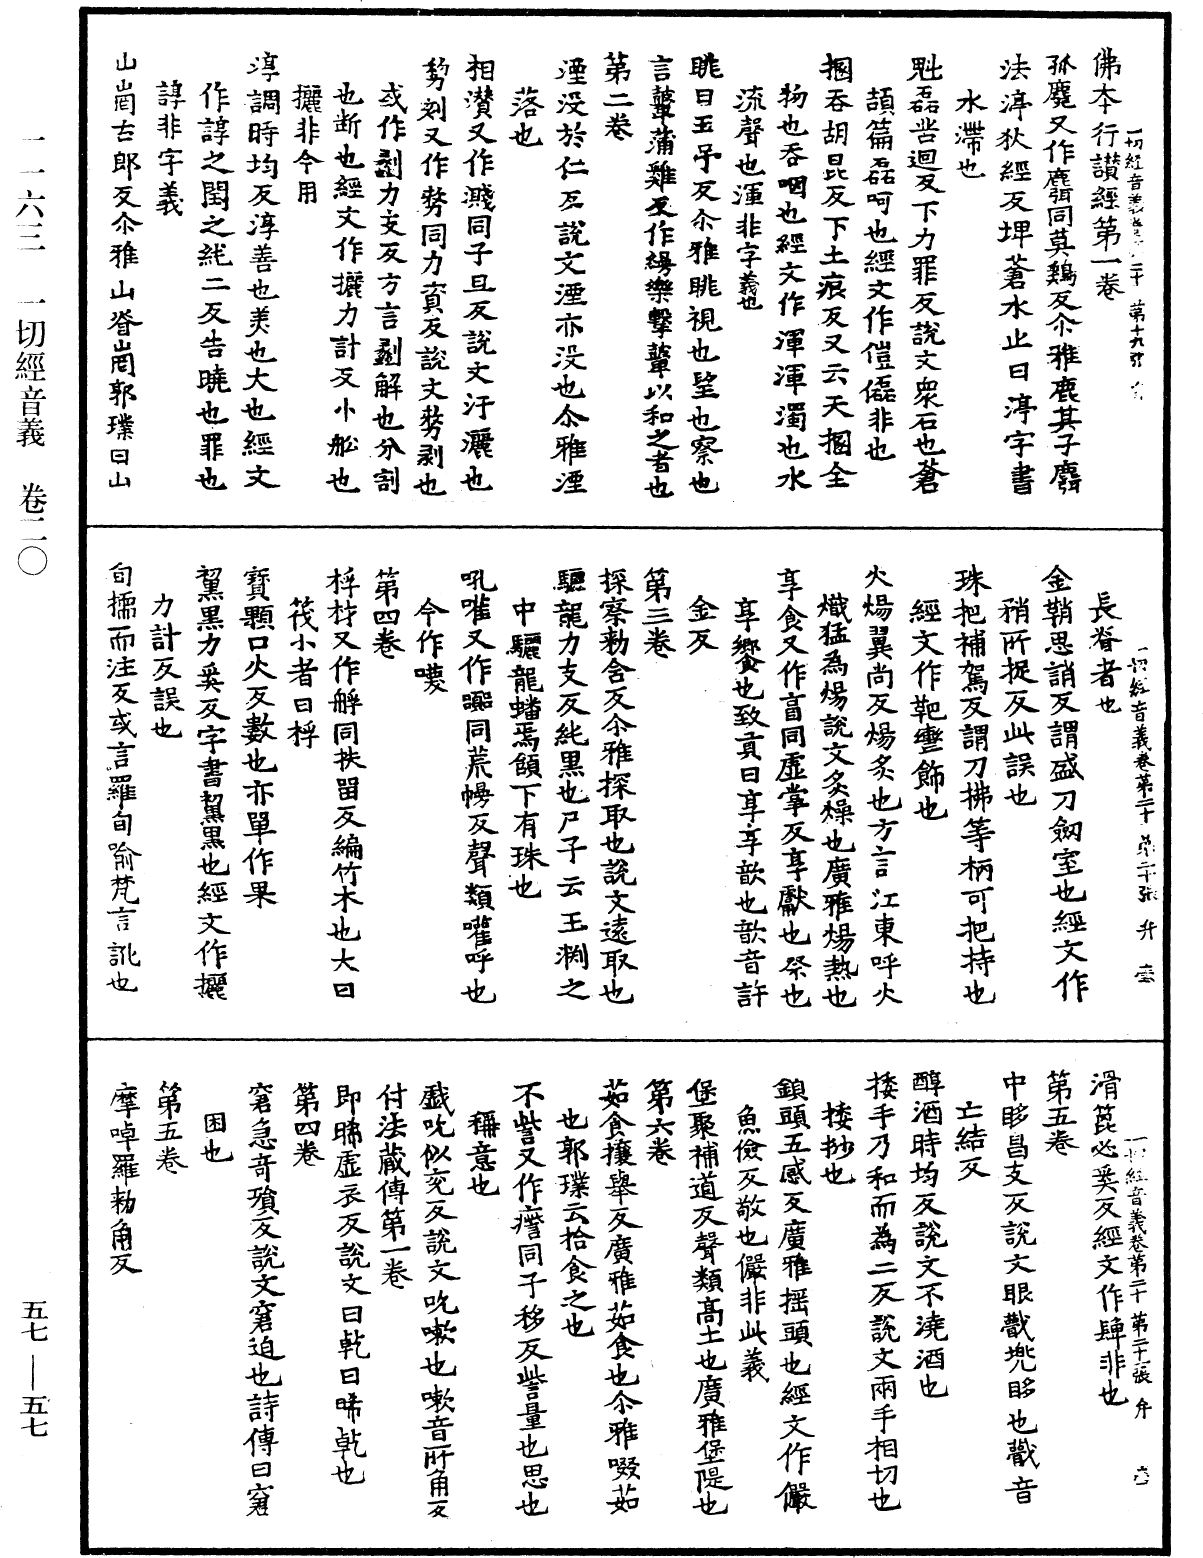 一一六三　一切經音義　卷二〇
五七—五七
佛本行讃經第一卷
孤麑又作麛同莫鷄反尒雅鹿其子麛
法渟狄經反埤蒼水止曰渟字書
水滯也
魁磊苦迴反下力罪反說文衆石也蒼
頡篇磊呵也經文作傀儡非也
掍吞胡昆反下土痕反又云天掍全
物也吞咽也經文作渾渾濁也水
流聲也渾非字義也
眺日玉弔反尒雅眺視也望也察也
言鼙蒲雞反作 樂擊鼙以和之者也
第二卷
湮没於仁反說文湮亦没也尒雅湮
落也
相濺又作濺同子旦反說文汙灑也
剺刻又作剺同力咨反說文剺剥也
或作劙力支反方言劙解也分割
也断也經文作攦力計反小舩也
攦非今用
淳調時均反淳善也美也大也經文
作諄之閏之純二反告曉也罪也
諄非字義
山崗古郎反尒雅山脊崗郭璞曰山
一切經音義卷第二十　第二十張　弁
長脊者也
金鞘思誚反謂盛刀劒室也經文作
稍所捉反此誤也
珠把補駕反謂刀拂等柄可把持也
經文作靶轡飾也
火煬翼尚反煬炙也方言江東呼火
熾猛為煬說文炙燥也廣雅煬熱也
享食又作亯同虛掌反享獻也祭也
享饗也致貢曰享享歆也歆音許
金反
第三卷
探察勑含反尒雅探取也說文遠取也
驪龍力支反純黒也尸子云玉渕之
中驪龍蟠焉頷下有珠也
吼嚾又作 同荒幔反聲類嚾呼也
今作喚
第四卷
桴栰又作艀同扶留反編竹木也大曰
筏小者曰桴
寶顆口火反數也亦單作果
黧黑力奚反字書黧黒也經文作攦
力計反誤也
旬擩而注反或言羅旬喻梵言訛也
一切經音義卷第二十　第二十一張　弁
滑箆必奚反經文作肆非也
第五卷
中眵昌支反說文眼䁾兠眵也䁾音
亡結反
醇酒時均反說文不澆酒也
捼手乃和而為二反說文兩手相切也
捼抄也
鎮頭五感反廣雅揺頭也經文作儼
魚儉反敬也儼非此義
堡聚補道反聲類高土也廣雅堡隄也
第六卷
茹食攘舉反廣雅茹食也尒雅啜茹
也郭璞云拾食之也
不訾又作 同子移反訾量也思也
稱意也
戲吮似兖反說文吮嗽也嗽音所角反
付法藏傳第一卷
即晞虛衣反說文日乾曰晞乾也
第四卷
窘急奇殞反說文窘迫也詩傳曰窘
困也
第五卷
摩啅羅勑角反